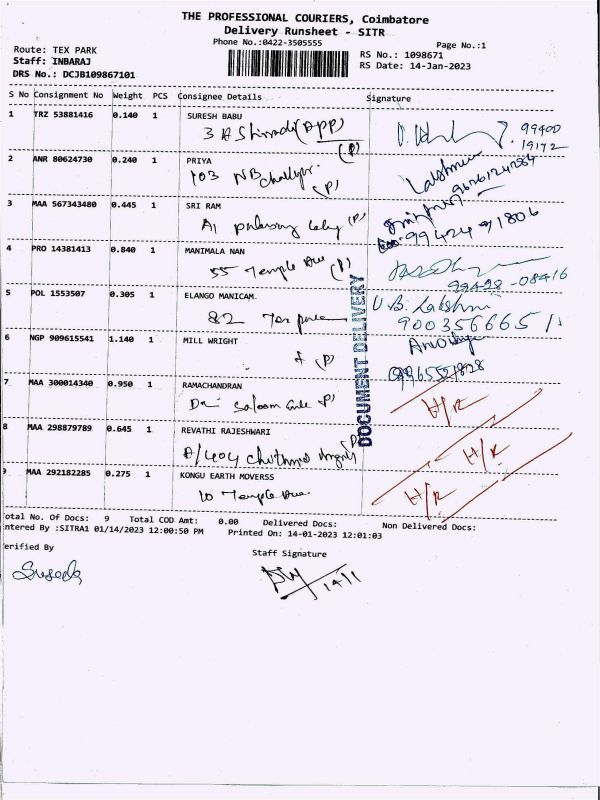 THE PROFESSIONAL COURIERS, Coimbatore
Delivery Runsheet - SITR
Phone No.:0422-3505555
Page No.:1
Route: TEX PARK
Staff: INBARAJ
DRS No.: DCJB109867101
RS No.: 1098671
RS Date: 14-Jan-2023
S No Consignment No Weight PCS Consignee Details Signature
1 TRZ 53881416 0.140 1 SURESH BABU
(P)
99400
19172
2 ANR 80624730 0.240 1 PRIYA
103 (P)
Lakshmi
9626124284
3 MAA 567343480 0.445 1 SRI RAM
A1 (P)
99424 71806
4 PRO 14381413 0.840 1 MANIMALA NAN
55 Temple Ave (P)
99498-08416
5 POL 1553507 0.305 1 ELANGO MANICAM.
82 Tex park
U.B. Lakshmi
900356665
6 NGP 909615541 1.140 1 MILL WRIGHT
(P)
7 MAA 300014340 0.950 1 RAMACHANDRAN
(P)
H/R
8 MAA 298879789 0.645 1 REVATHI RAJESHWARI
A/404 (P)
H/R
9 MAA 292182285 0.275 1 KONGU EARTH MOVERSS
10 Temple Ave
H/R
DOCUMENT DELIVERY
otal No. Of Docs: 9 Total COD Amt: 0.00 Delivered Docs: Non Delivered Docs:
ntered By :SITRA1 01/14/2023 12:00:50 PM Printed On: 14-01-2023 12:01:03
erified By
Staff Signature
14/1